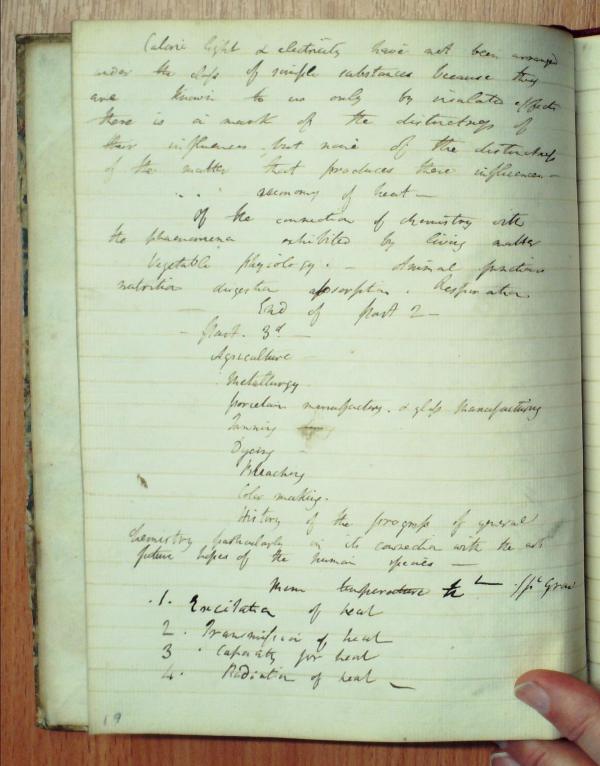 Caloric light & electricity have not been arranged
under the class of simple substances because they
are known to us only by insulate effects
there is a mark of the distinctness of
their influences, but none of the distinctness
of the matter that produces these influences –
oeconomy of heat –
Of the connection of chemistry with
the phaenomena exhibited by living matter
Vegetable physiology. – Animal functions
nutrition digestion absorption. Respiration
End of Part 2 –
– Part. 3d –
Agriculture
Metallurgy
porcelain manufactory. & glass manufacturing
Tanning
Dyeing –
Bleaching
Color making.
History of the progress of general
Chemistry particularly in its connection with the arts
future hopes of the human species —
Mem temperature
.1. Excitation of heat
2. Transmission of heat
3. Capacity for heat
4. Radiation of heat –
19